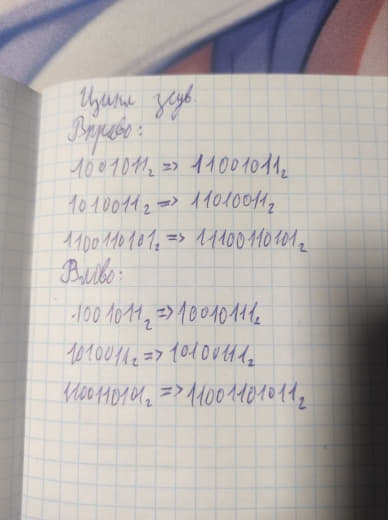 Цикл зсув
Вправо:
1001011₂ => 11001011₂
1010011₂ => 11010011₂
1100110101₂ => 11100110101₂
Вліво:
1001011₂ => 10010111₂
1010011₂ => 10100111₂
1100110101₂ => 11001101011₂